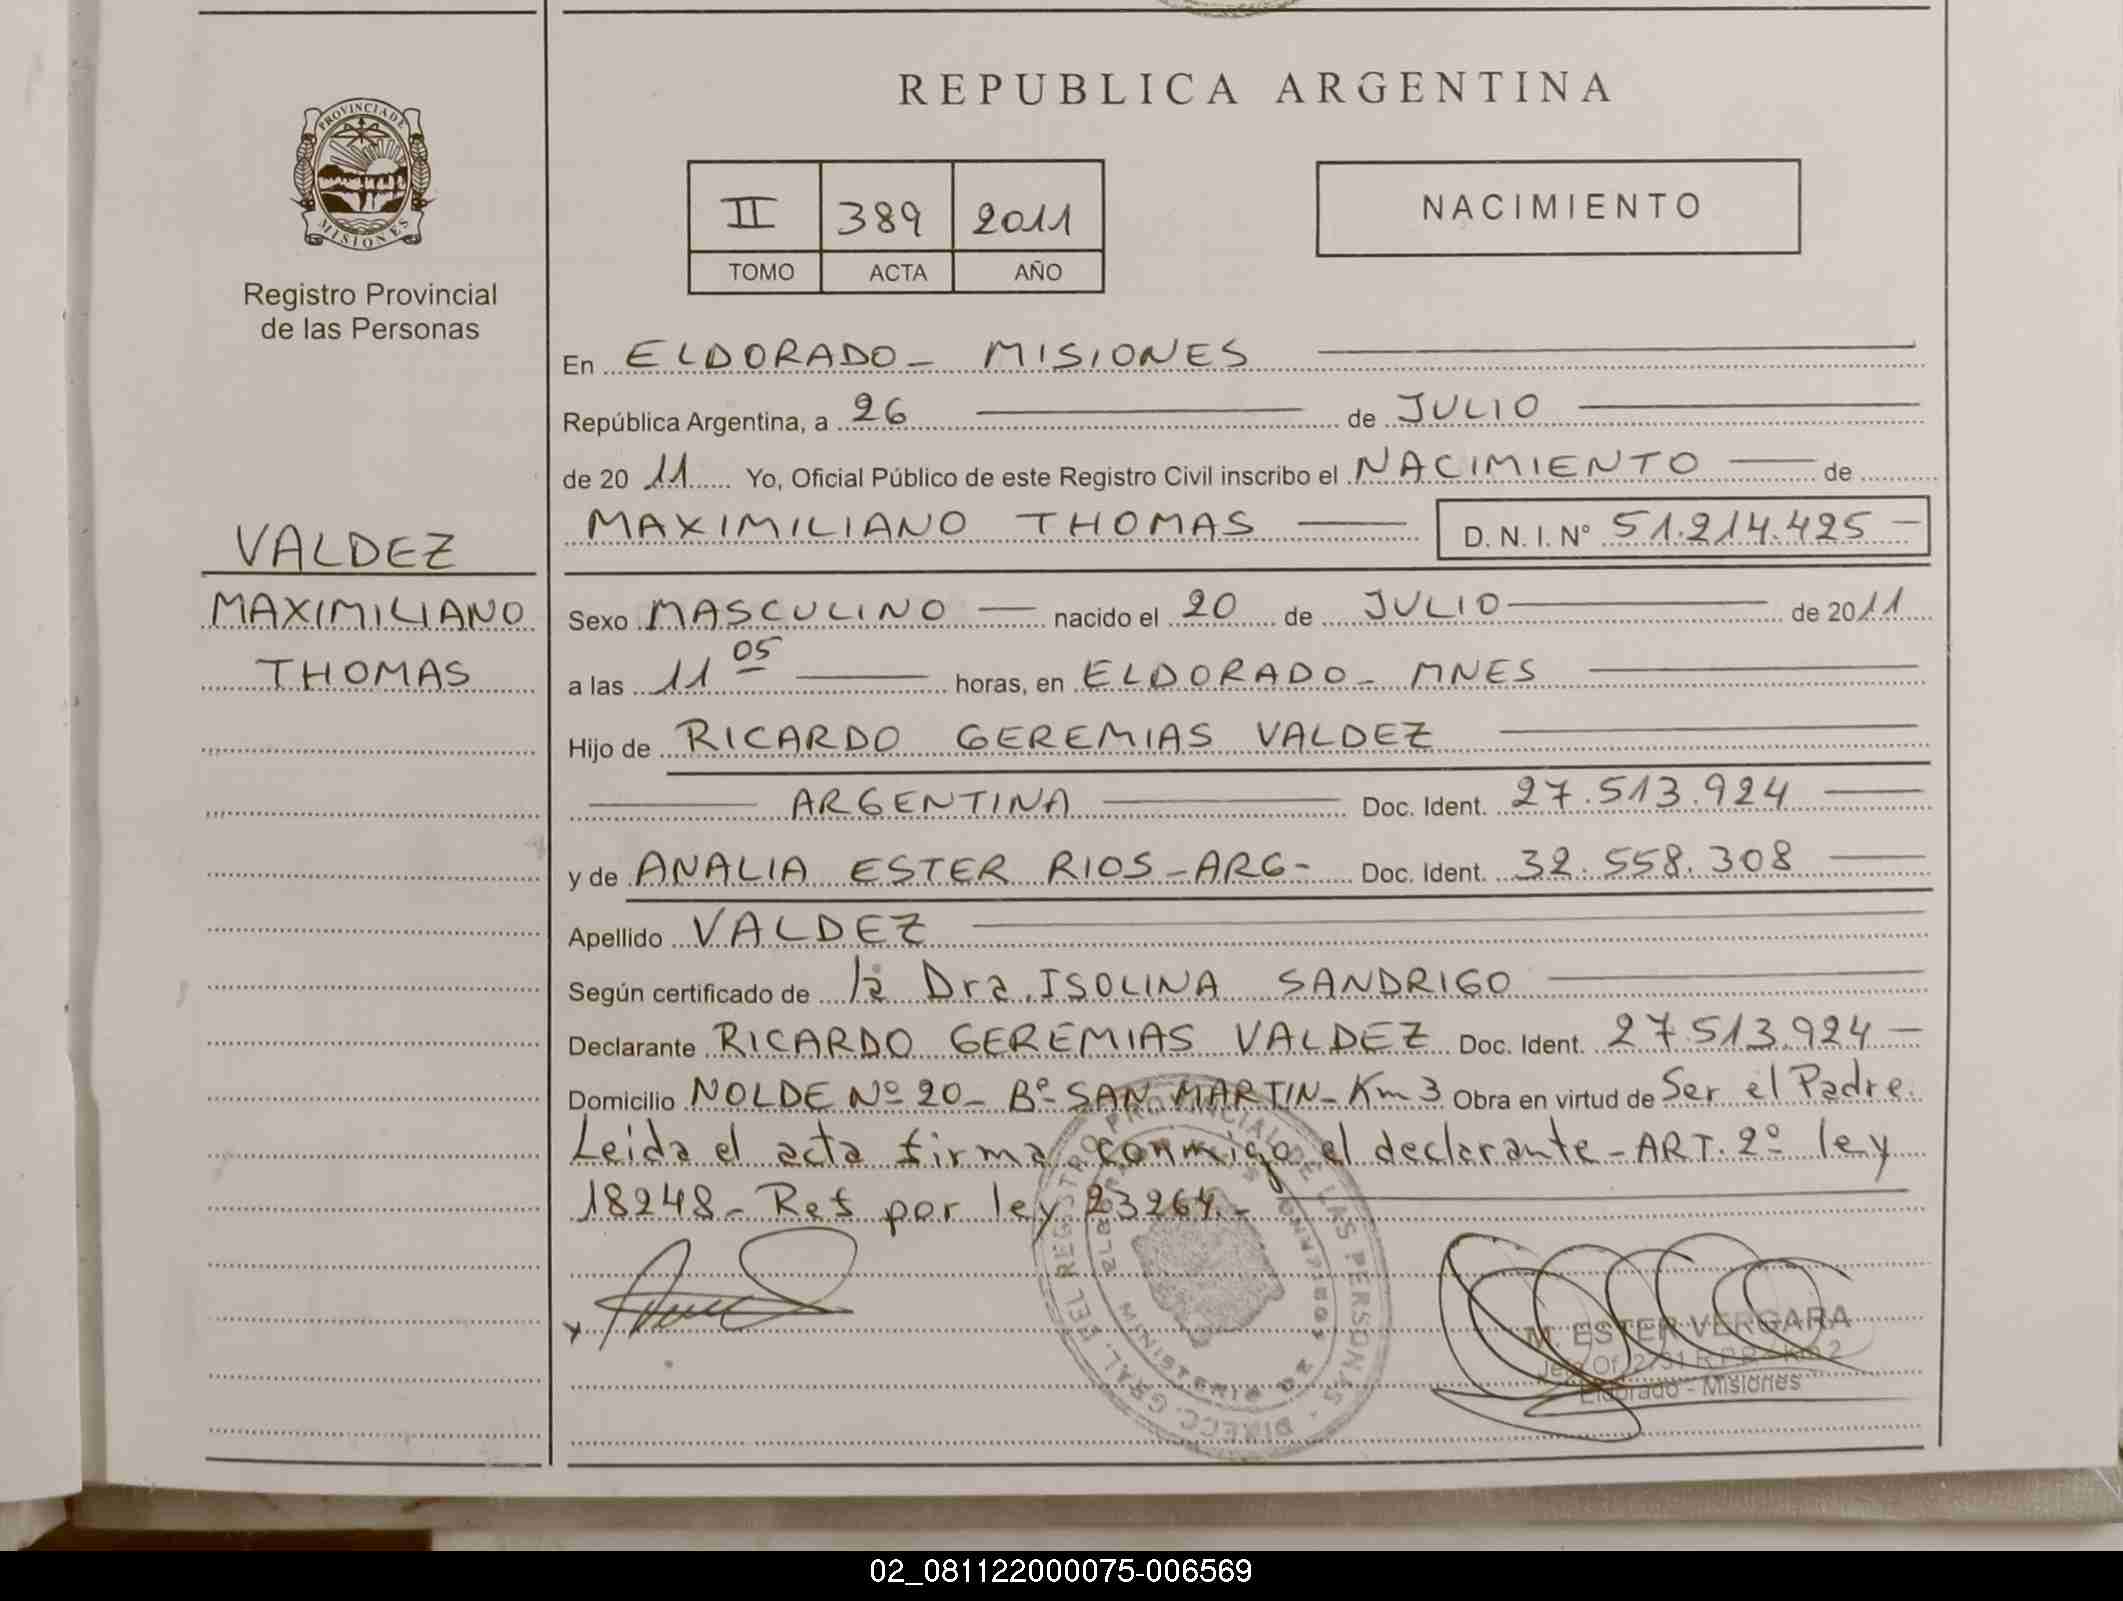 REPUBLICA ARGENTINA
PROVINCIA DE
MISIONES
Registro Provincial
de las Personas
II 389 2011
TOMO ACTA AÑO
NACIMIENTO
En ELDORADO - MISIONES
República Argentina, a 26 de JULIO
de 20 11 Yo, Oficial Público de este Registro Civil inscribo el NACIMIENTO de
MAXIMILIANO THOMAS D. N. I. Nº 51.214.425
VALDEZ
MAXIMILIANO
THOMAS
Sexo MASCULINO nacido el 20 de JULIO de 2011
a las 11 05 horas, en ELDORADO - MNES
Hijo de RICARDO GEREMIAS VALDEZ
ARGENTINA Doc. Ident. 27.513.924
y de ANALIA ESTER RIOS - ARG - Doc. Ident. 32.558.308
Apellido VALDEZ
Según certificado de la Dra. ISOLINA SANDRIGO
Declarante RICARDO GEREMIAS VALDEZ Doc. Ident. 27.513.924
Domicilio NOLDE Nº 20 - Bº SAN MARTIN - Km 3 Obra en virtud de Ser el Padre.
Leida el acta firma conmigo el declarante - ART. 2º ley
18248 - Ref por ley 23264.-
DIRECC. GRAL. DEL REGISTRO PROVINCIAL DE LAS PERSONAS
MINISTERIO DE
M. ESTER VERGARA
Eldorado - Misiones
02_081122000075-006569